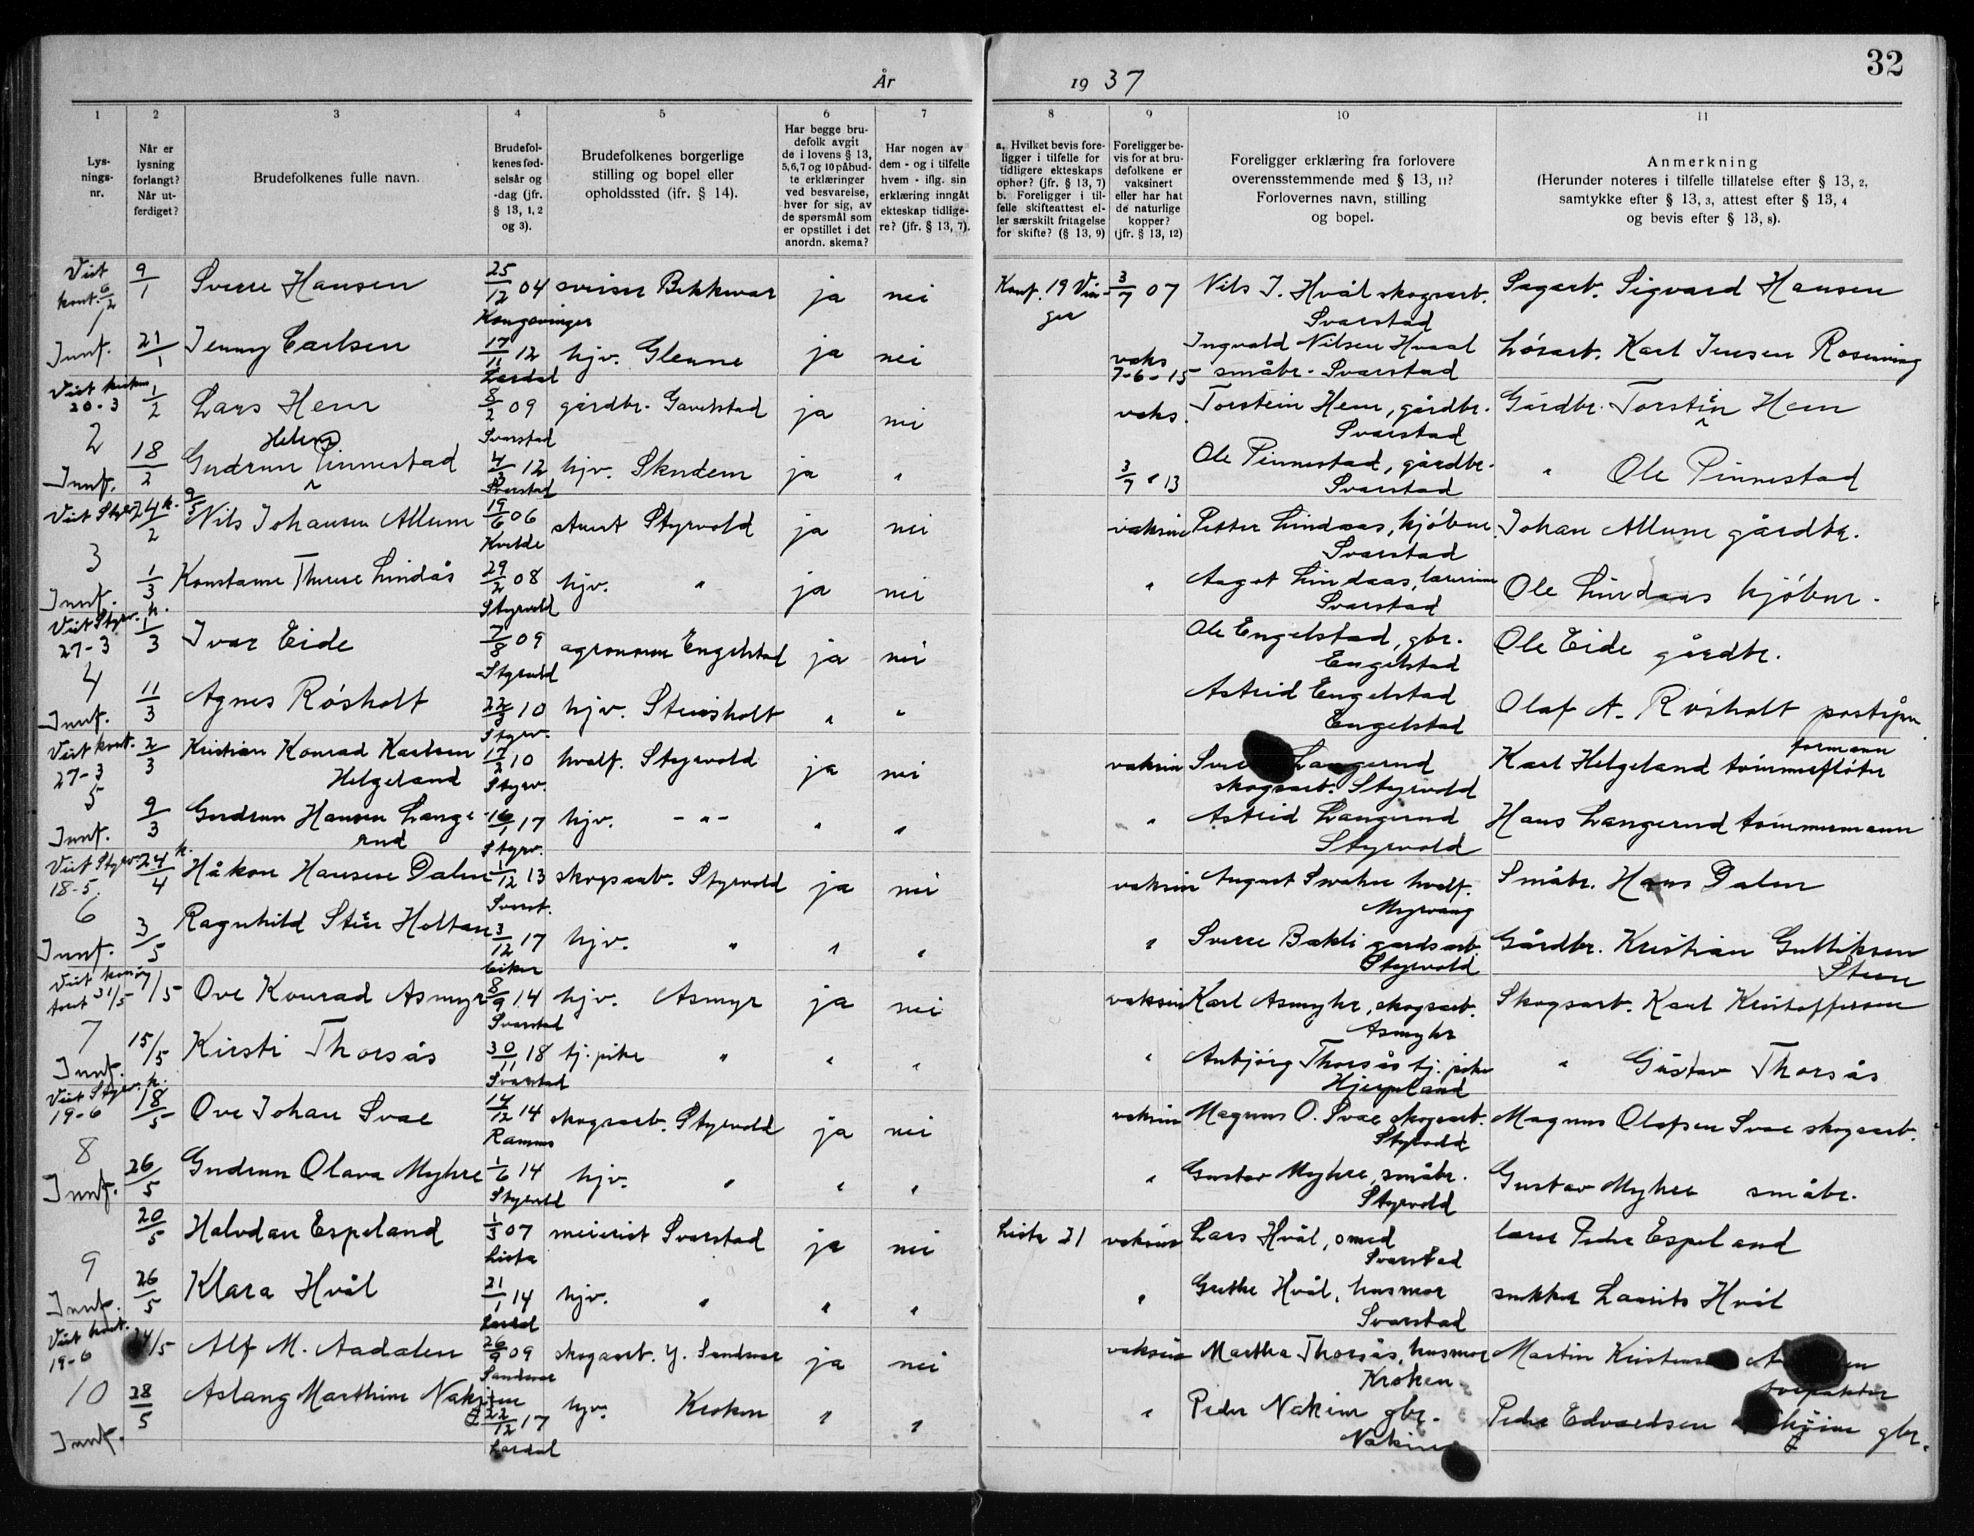 32
År 1937
1 2 3 4 5 6 7 8 9 10 11
Lys-
nings-
nr.
Når er
lysning
forlangt?
Når ut-
ferdiget?
Brudefolkenes fulle navn.
Brudefol-
kenes fød-
selsår og
-dag (jfr.
§ 13, 1, 2
og 3).
Brudefolkenes borgerlige
stilling og bopel eller
opholdssted (ifr. § 14).
Har begge bru-
defolk avgit
de i lovens § 13,
5, 6, 7 og 10 påbud-
te erklæringer
ved besvarelse,
hver for sig, av
de spørsmål som
er opstillet i det
anordn. skema?
Har nogen av
dem - og i tilfelle
hvem - iflg. sin
erklæring inngått
ekteskap tidlige-
re? (jfr. § 13, 7).
a. Hvilket bevis fore-
ligger i tilfelle for
tidligere ekteskaps
ophør? (jfr. § 13, 7)
b. Foreligger i til-
felle skifteattest el-
ler særskilt fritagelse
for skifte? (§ 13, 9)
Foreligger be-
vis for at bru-
defolkene er
vaksinert
eller har hat
de naturlige
kopper?
(jfr. § 13, 12)
Foreligger erklæring fra forlovere
overensstemmende med § 13, 11?
Forlovernes navn, stilling
og bopel.
Anmerkning
(Herunder noteres i tilfelle tillatelse efter § 13, 2,
samtykke efter § 13, 3, attest efter § 13, 4
og bevis efter § 13, 8).
Viet kont. 6/2 9/1 Sverre Hansen 25/12 04 Kongsvinger sveiser Bekkevar ja nei Konf. 19 Vinger 3/7 07 Nils J. Hvål skogsarb. Svarstad Sagarb. Sigvard Hansen
1 Innf. 21/1 Jenny Carlsen 17/11 12 Lardal hjv. Glenne ja nei vaks 7-6-15 Ingvald Nilsen Hvaal småbr. Svarstad Løsarb. Karl Jensen
Viet kirken 20-3 1/2 Lars Hem 8/2 09 Svarstad gårdbr. Gavelstad ja nei vaks. Torstein Hem, gårdbr. Svarstad Gårdbr. Torstein Hem
2 Innf. 18/2 Gudrun Helene Pinnestad 4/3 12 Svarstad hjv. Skndem ja " 3/7 13 Ole Pinnestad, gårdbr. Svarstad " Ole Pinnestad
Viet Styrv. k. 9/5 24/2 Nils Johansen Allum 19/6 06 Kvelde Styrvold ja nei vaksine Petter Lindaas, kjøbm. Svarstad Johan Allum gårdbr.
3 Innf. 1/3 Konstanse Therese Lindås 29/2 08 Styrvold hjv. " ja nei " Aagot Lindaas, lærerinne Svarstad Ole Lindaas kjøbm.
Viet Styrv. k. 27-3 1/3 Ivar Eide 7/8 09 Styrvold agronom Engelstad ja nei Ole Engelstad, gbr. Engelstad Ole Eide gårdbr.
4 Innf. 11/3 Agnes Røsholt 22/3 10 Styrv. hjv. Steinsholt " " Astrid Engelstad Engelstad Olaf A. Røsholt poståpn.
Viet kont. 27-3 2/3 Kristian Konrad Karlsen Helgeland 17/2 10 Styrv. hvalf. Styrvold ja nei vaksin Langerud skogsarb. Styrvold Karl Helgeland tømmerfløter formann
5 Innf. 9/3 Gudrun Hansen Langerud 16/1 17 Styrv. hjv. -"- " " " Astrid Langerud Styrvold Hans Langerud tømmermann
Viet Styrv. k. 18-5. 24/4 Håkon Hansen Dalen 1/12 13 Svarst. skogsarb. Styrvold ja nei vaksin August hvalf. Myrvang Småbr. Hans Dalen
6 Innf. 3/5 Ragnhild Steen Holtan 3/12 17 Eiker hjv. " " " " Sverre Bakli gardsarb. Styrvold Gårdbr. Kristian Gulliksen Steen
Viet 31/5 7/5 Ove Konrad Asmyr 8/9 14 Svarstad hjv. Asmyr ja nei vaksin Karl Asmyhr, skogsarb. Asmyhr Skogsarb. Karl Kristoffersen
7 Innf. 15/5 Kirsti Thorsås 30/11 18 Svarstad tj. pike " " " " Anbjørg Thorsås tj. pike Hjerpeland " Gustav Thorsås
Viet Styrv. k. 19-6 18/5 Ove Johan Svae 14/12 14 Ramnes skogsarb. Styrvold ja nei vaksin Magnus O. Svae skogsarb. Styrvold Magnus Olafsen Svae skogsarb.
8 Innf. 26/5 Gudrun Olava Myhre 1/6 14 Styrvold hjv. " " " " Gustav Myhre, småbr. Styrvold Gustav Myhre småbr.
20/5 Halvdan Espeland 1/3 07 Lista meierist Svarstad ja nei Lista 21 vaksin Lars Hvål, smed Svarstad lærer Peder Espeland
9 Innf. 26/5 Klara Hvål 21/1 14 Lardal hjv. " " " " Grethe Hvål, husmor Svarstad snekker Laurits Hvål
Viet kont. 19-6 24/5 Alf M. Aadalen 26/9 09 Sandsvær skogsarb. Y. Sandsvær ja nei vaksin Martha Thorsås, husmor Kroken Martin Kristensen
10 Innf. 28/5 Aslaug Marthine Nakjem 22/12 17 Lardal hjv. Kroken " " " Peder Nakjem gbr. Peder Edvardsen gbr.